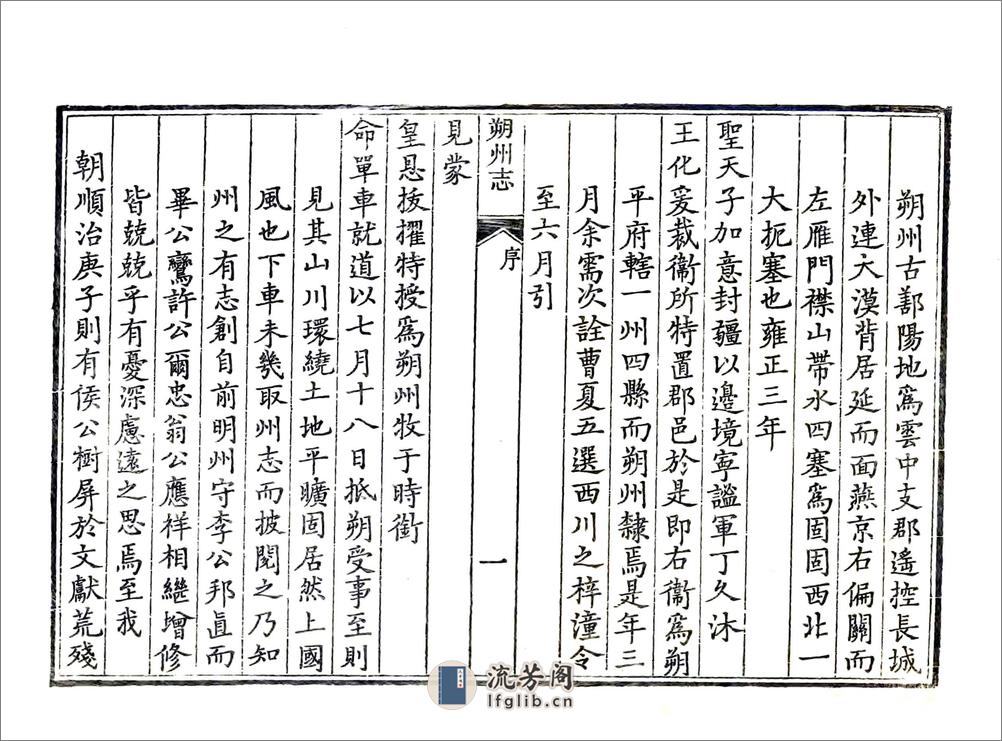 朔州古鄯陽地爲雲中支郡遙控長城
外連大漠背居延而面燕京右偏關而
左雁門襟山帶水四塞爲固固西北一
大扼塞也雍正三年
聖天子加意封疆以邊境寧謐軍丁久沐
王化爰裁衞所特置郡邑於是即右衞爲朔
平府轄一州四縣而朔州隸焉是年三
月余需次詮曹夏五選西川之梓潼令
至六月引
朔州志
序
一
見蒙
皇恩拔擢特授爲朔州牧于時銜
命單車就道以七月十八日抵朔受事至則
見其山川環繞土地平曠固居然上國
風也下車未幾取州志而披閱之乃知
州之有志創自前明州守李公邦直而
畢公鸞許公爾忠翁公應祥相繼增修
皆兢兢乎有憂深慮遠之思焉至我
朝順治庚子則有侯公樹屏於文獻荒殘
流芳阁
lfglib.cn